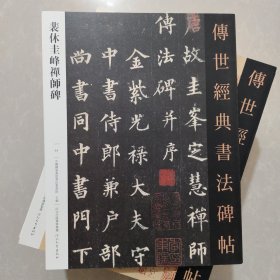 傳世經典書法碑帖
唐故圭峯定慧禪師
傳法碑并序
金紫光禄大夫守
中書侍郎兼户部
尚書同中書門下
裴休圭峰禪師碑
傳世經
帖